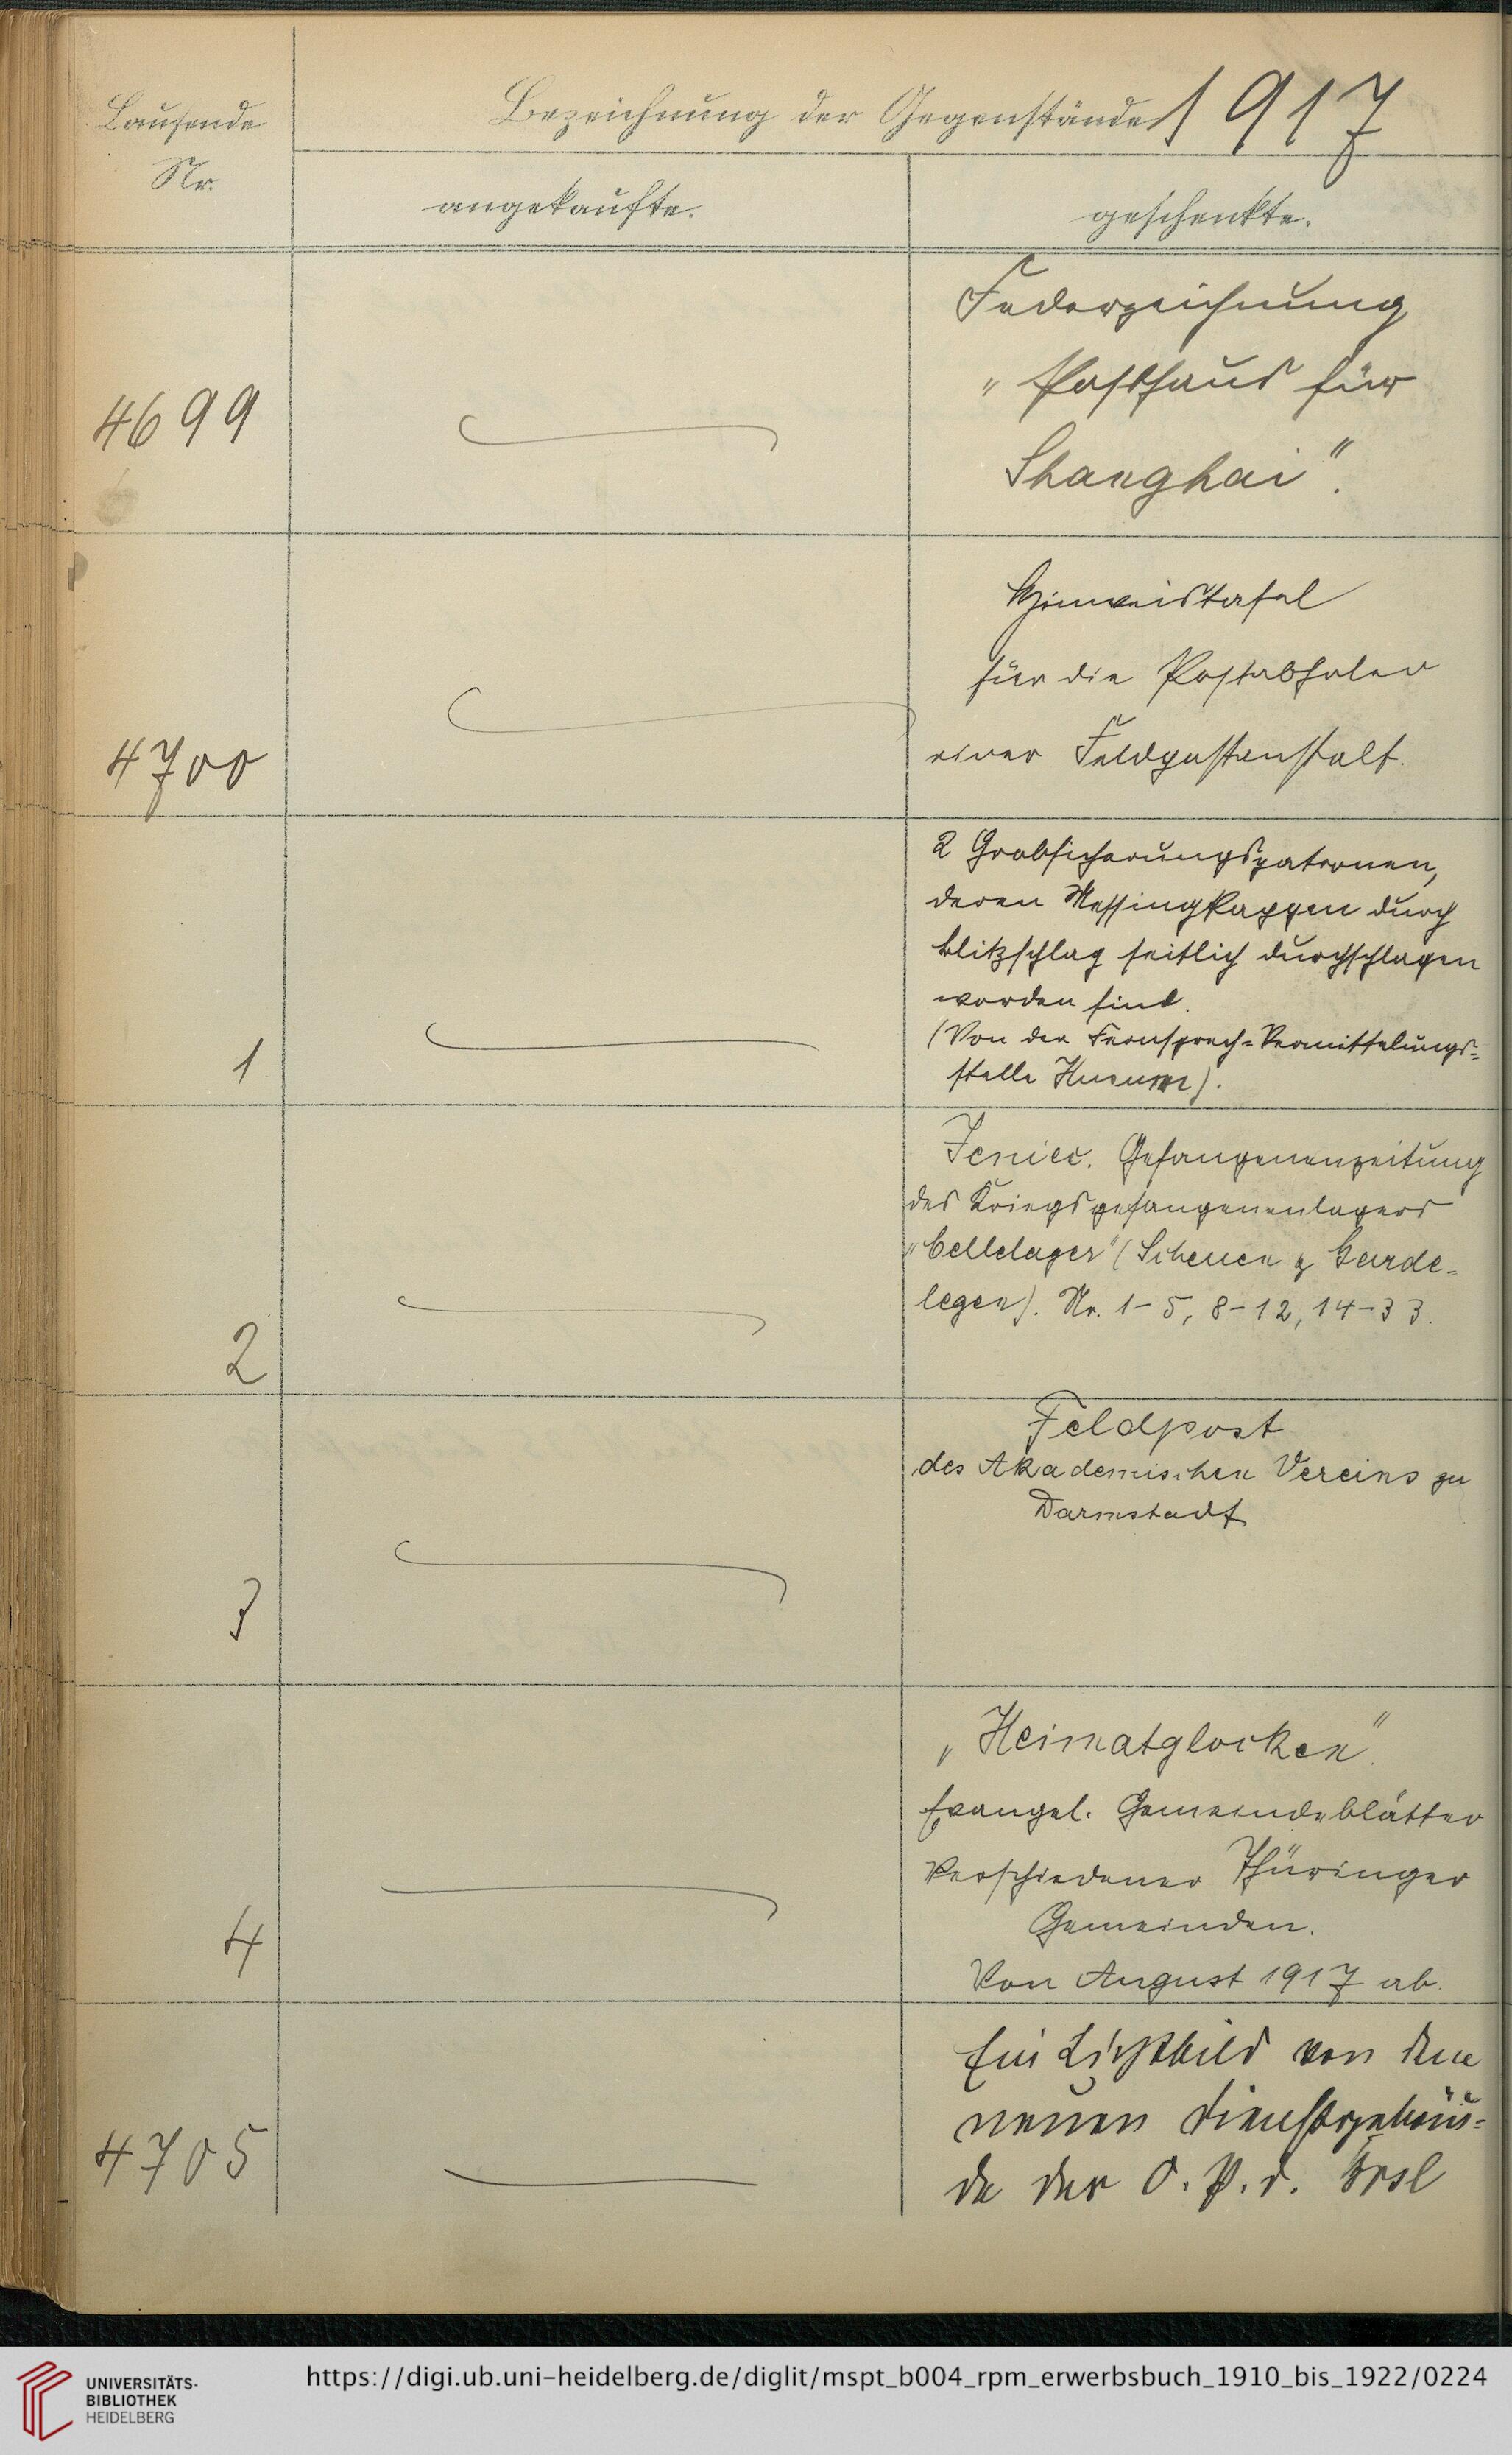 Laufende
Nr.
Bezeichnung der Gegenstände 1917
angekaufte.
geschenkte.
4699
Federzeichnung
„Posthaus für
Shanghai".
4700
Hinweistafel
für die Postabholer
einer Feldpostanstalt.
1
2 Grobsicherungspatronen,
deren Messingkappen durch
Blitzschlag seitlich durchschlagen
worden sind.
(Von der Fernsprech=Vermittelungs=
stelle Husum).
2
Gefangenenzeitung
des Kriegsgefangenenlagers
„Cellelager" (Scheuen & Garde-
legen). Nr. 1-5, 8-12, 14-33.
3
Feldpost
des Akademischen Vereins zu
Darmstadt
4
„Heimatglocken".
Evangel. Gemeindeblätter
verschiedener Thüringer
Gemeinden.
Von August 1917 ab.
4705
Ein Lichtbild von dem
neuen Dienstgebäu=
de der O.P.D.
UNIVERSITÄTS-
BIBLIOTHEK
HEIDELBERG
https://digi.ub.uni-heidelberg.de/diglit/mspt_b004_rpm_erwerbsbuch_1910_bis_1922/0224